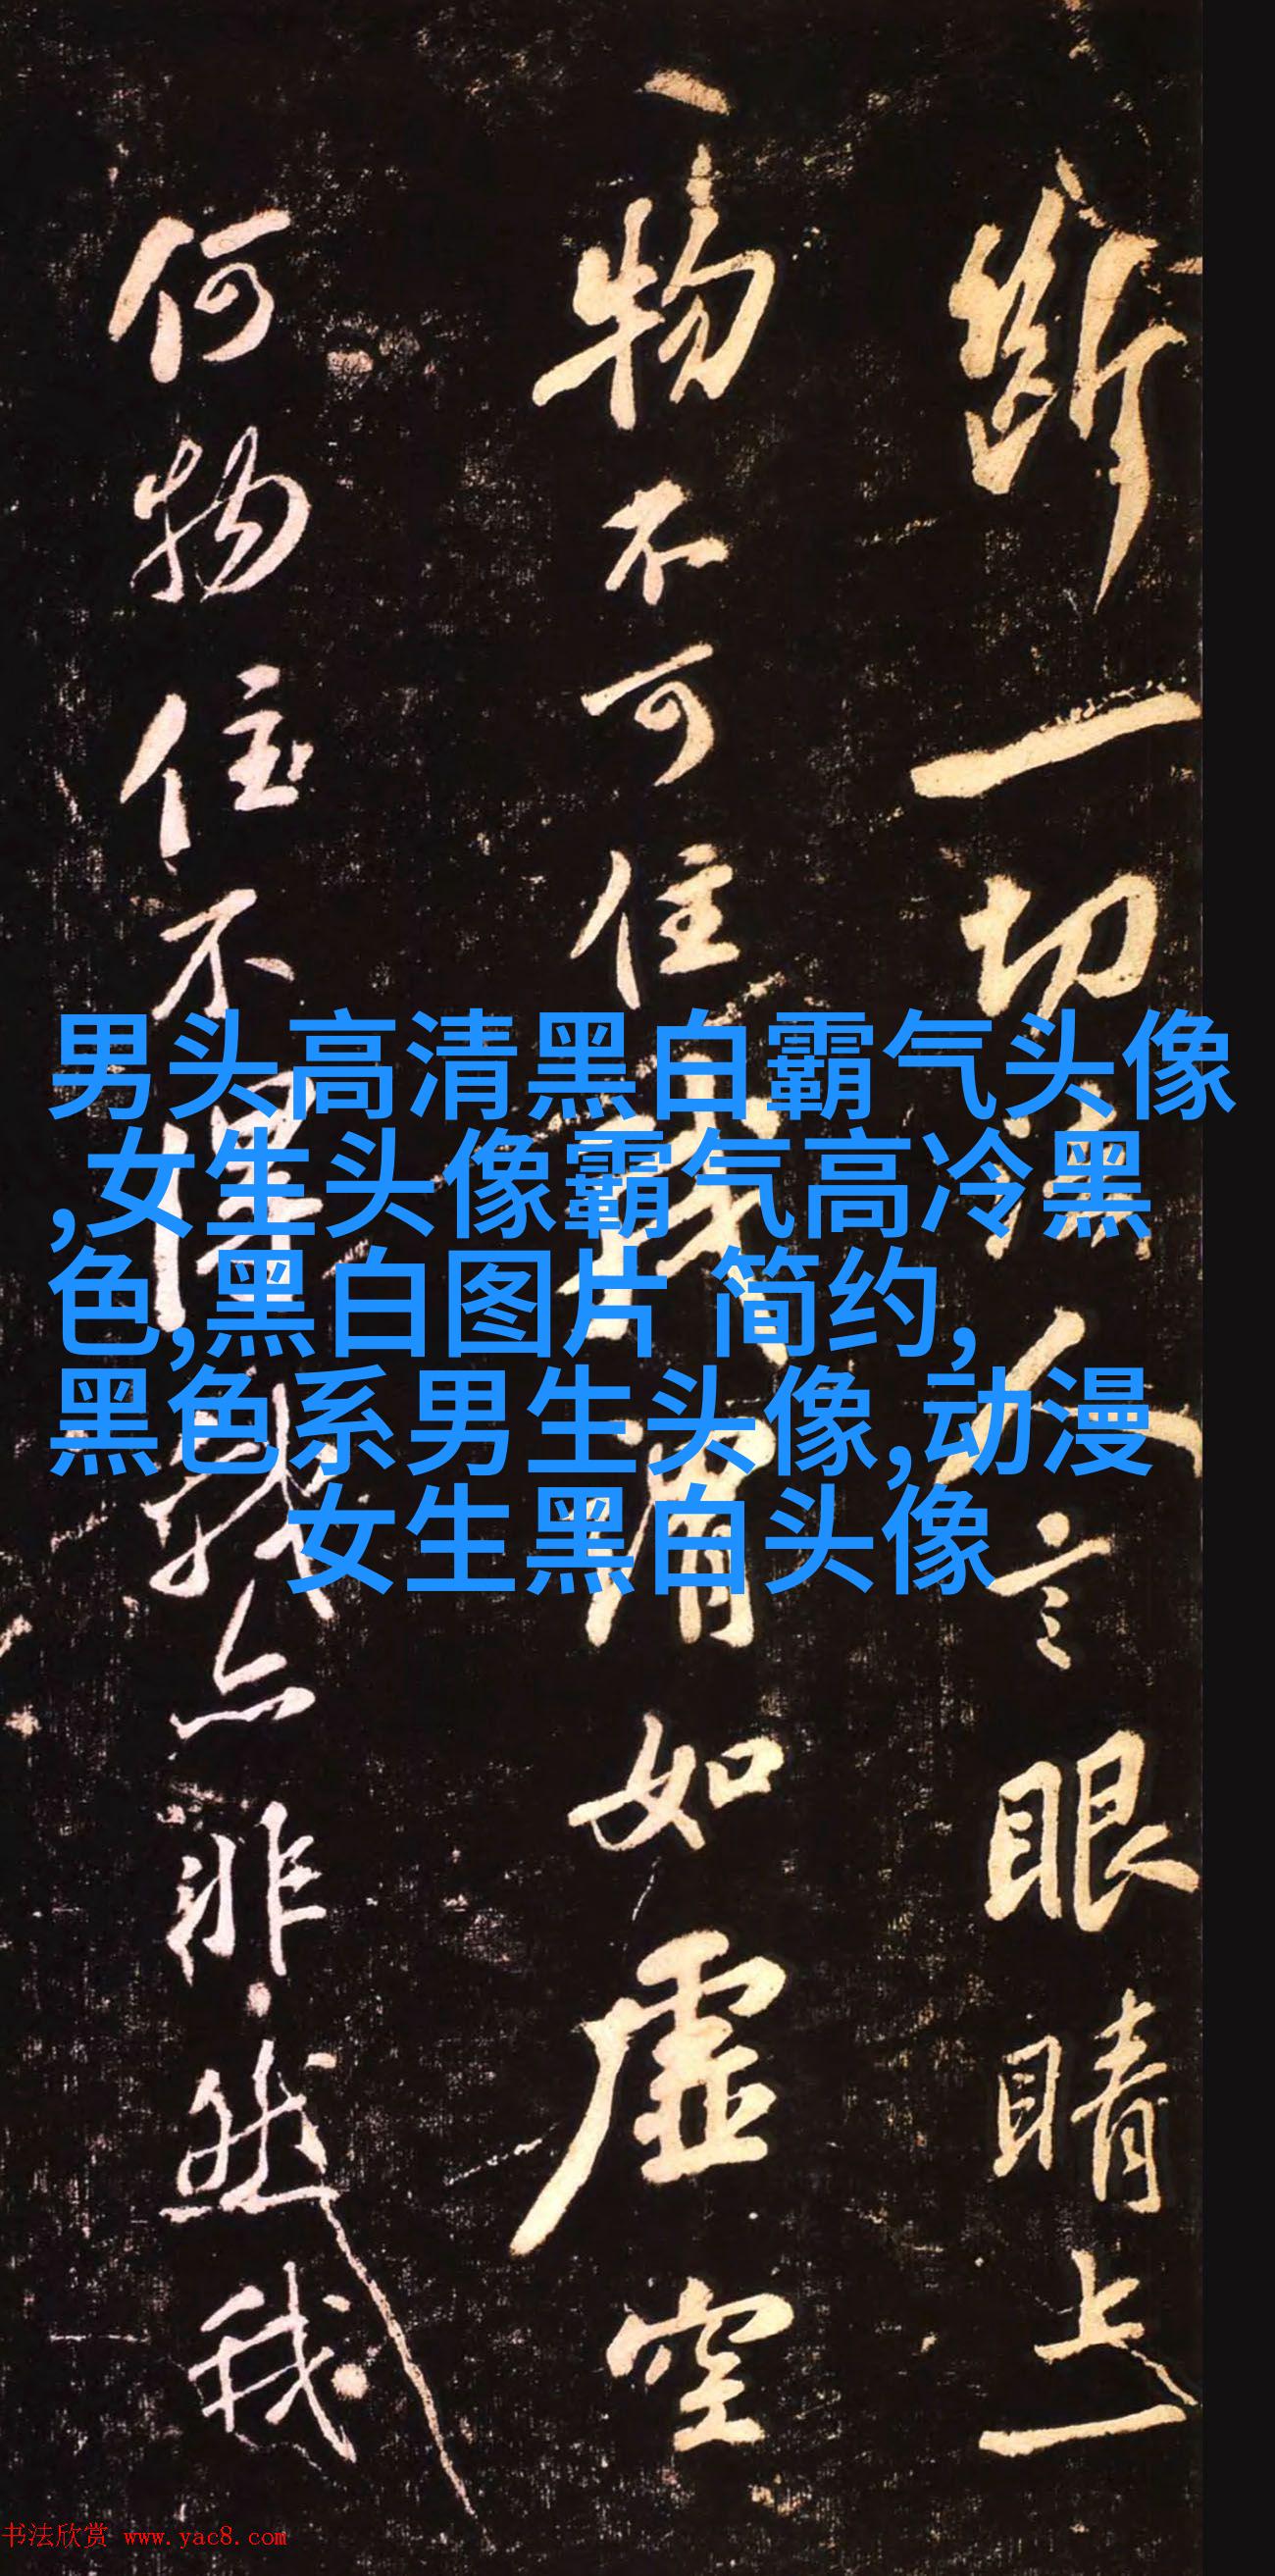 断一切法人言眼睛上一
物不可住我谓如虚空
何物住不得我亦非然我
男头高清黑白霸气头像
,女生头像霸气高冷黑
色,黑白图片 简约,
黑色系男生头像,动漫
女生黑白头像
书法欣赏 www.yac8.com